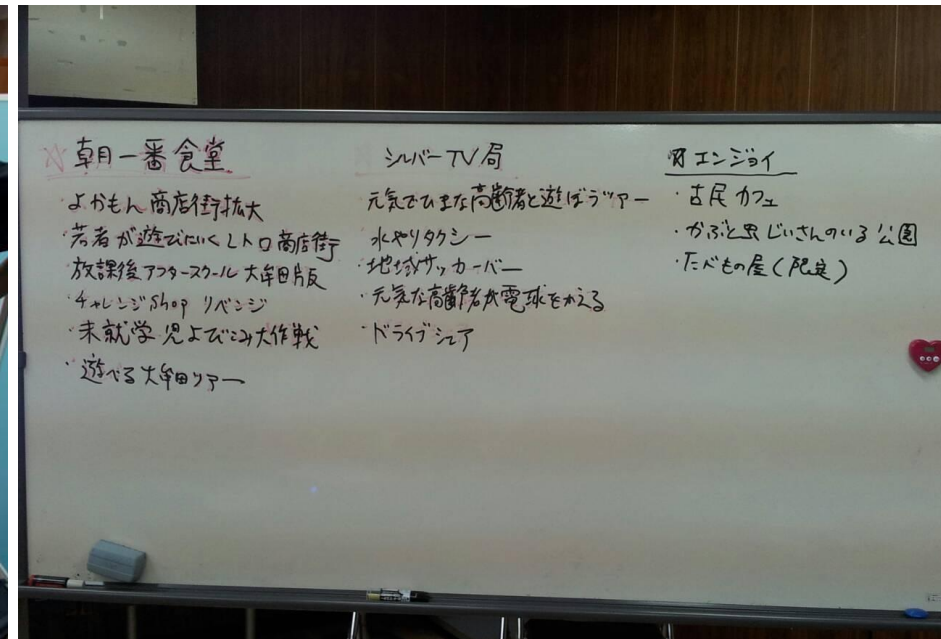 朝一番食堂
・よかもん商店街拡大
・若者が遊びにいくレトロ商店街
・放課後アフタースクール 大牟田版
・チャレンジShop リベンジ
・未就学児よびこみ大作戦
・遊べる大牟田ツアー
シルバーTV局
元気でひまな高齢者と遊ぼうツアー
・水やりタクシー
・地域サッカーバー
・元気な高齢者が電球をかえる
・ドライブシェア
エンジョイ
・古民カフェ
・かぶと虫じいさんのいる公園
・たべもの屋(限定)